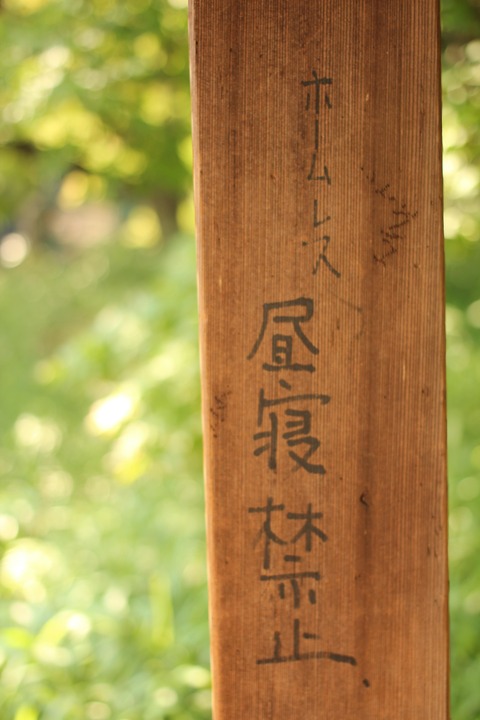 ホームレス
昼寝禁止